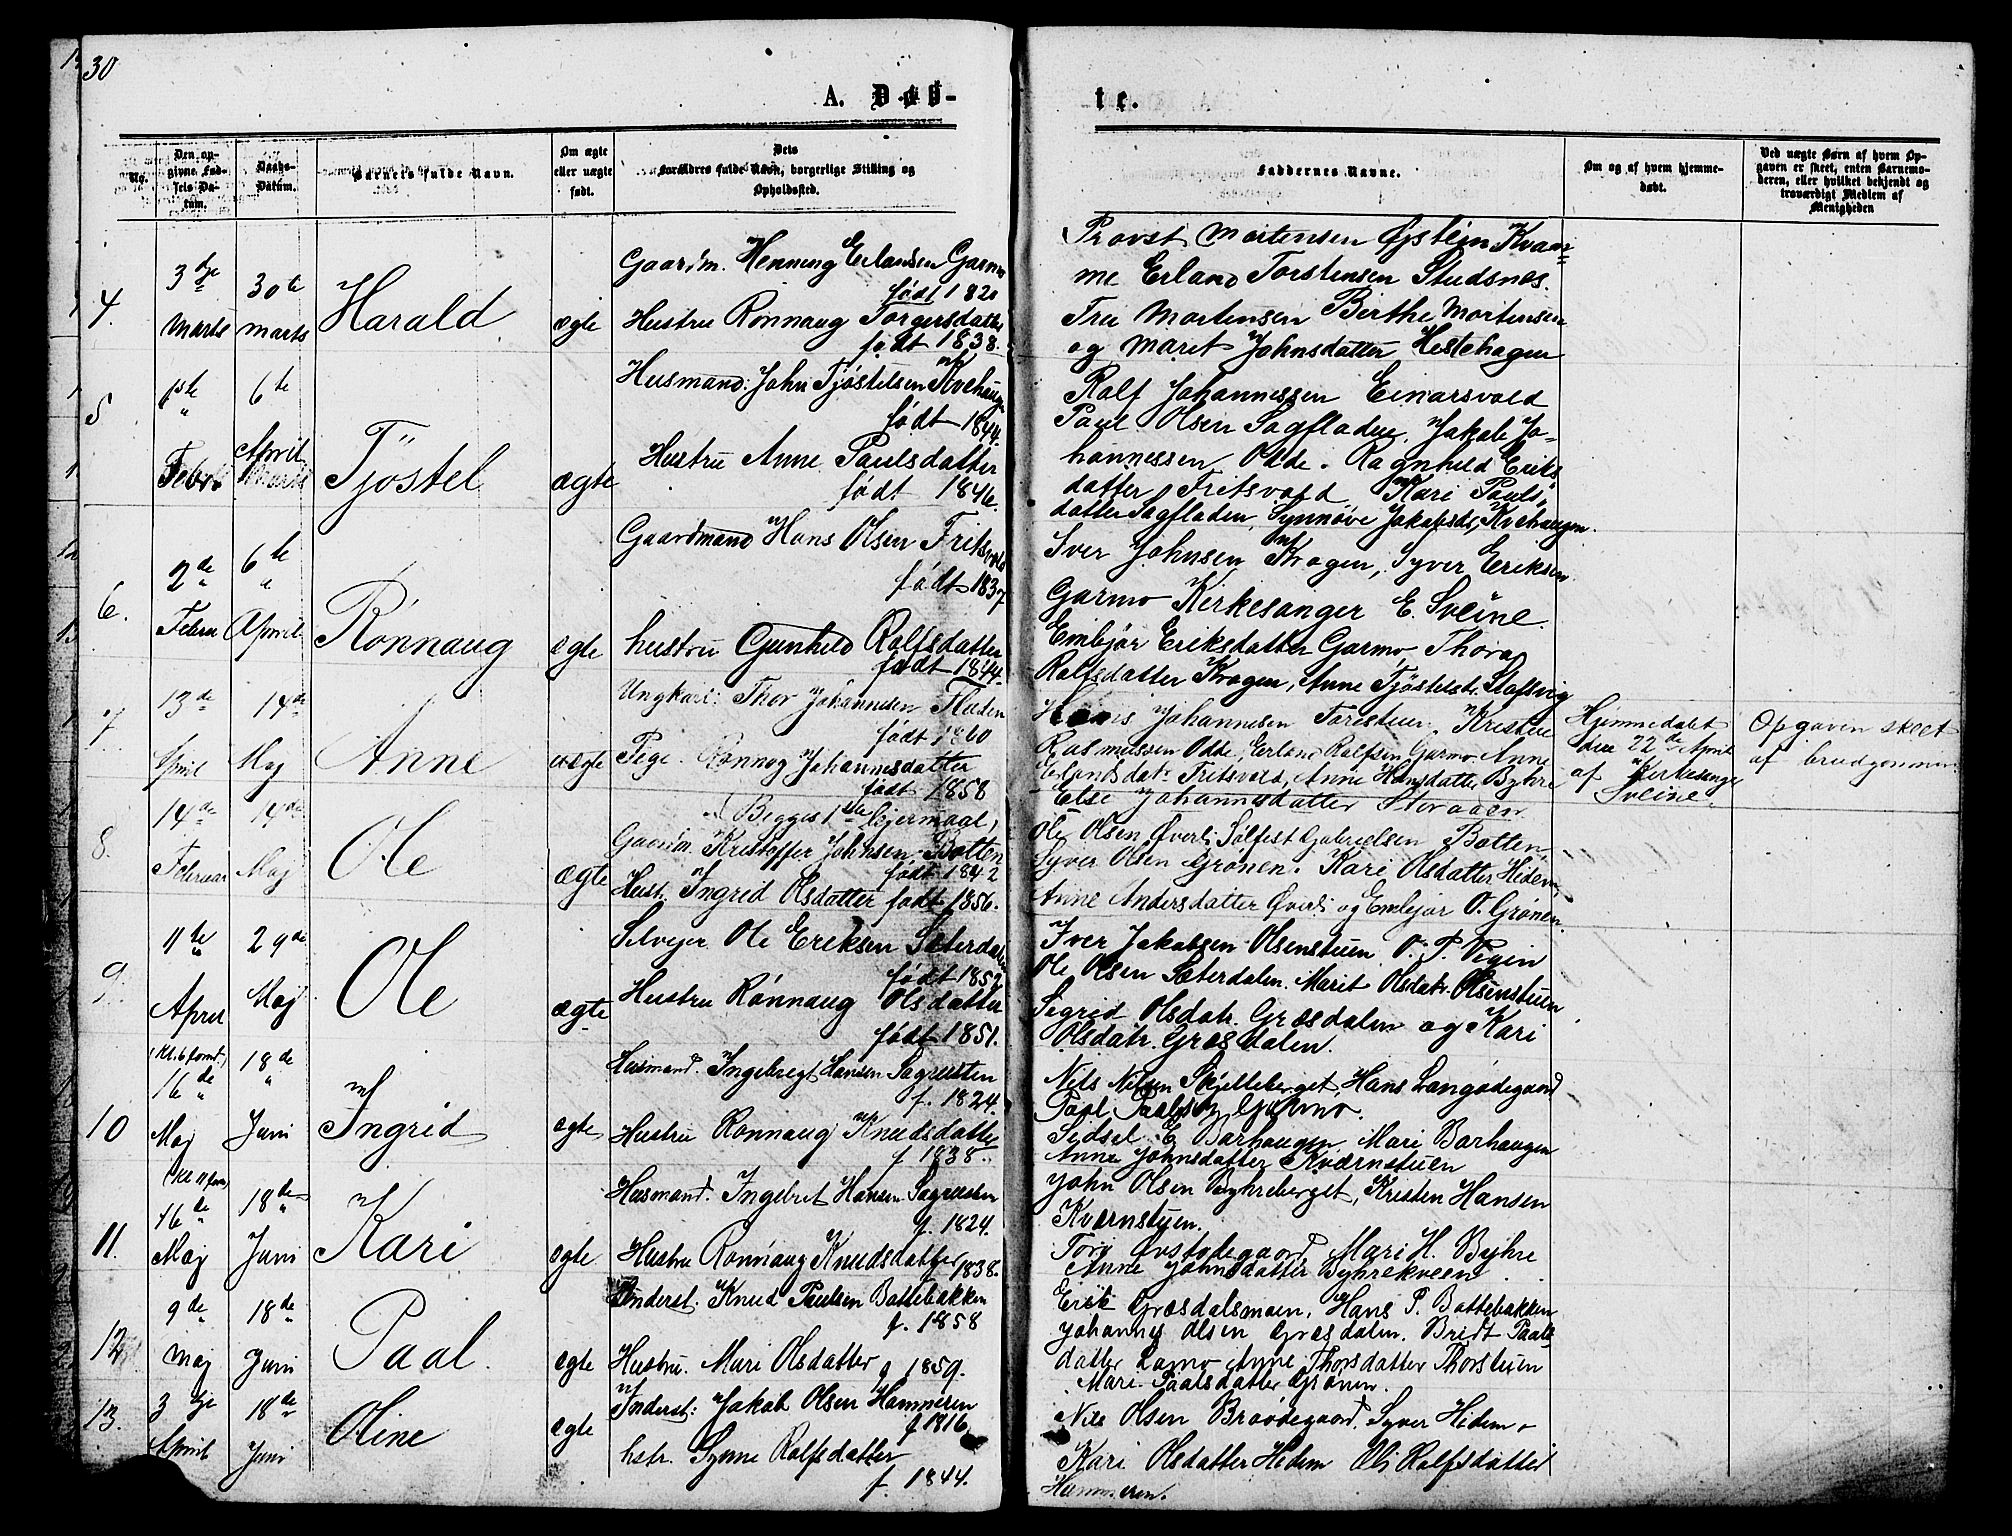 30
A. Døb-
te.
No.
Den op-
givne Fød-
sels Da-
tum.
Daabs-
Datum.
Barnets fulde Navn.
Om ægte
eller uægte
født.
Dets
Forældres fulde Navn, borgerlige Stilling og
Opholdssted.
Faddernes Navne.
Om og af hvem hjemme-
døbt.
Ved uægte Børn af hvem Op-
gaven er skeet, enten Barnemo-
deren, eller hvilket bekjendt og
troværdigt Medlem af
Menigheden
4.
3die
Marts
30te
marts
Harald
ægte
Gaardm. Henning Erlandsen Garmo
født 1820
Hustru Rønnaug Torgersdatter
født 1838
Provst Mortensen Øystein Kvam=
me Erland Torstensen Studsnes.
Fru Mortensen Birthe Mortensen
og Marit Johnsdatter Hestehagen
5
Febr.
6te
April
Tjöstel
ægte
Husmand. John Tjøstelsen Kvehaugn
født 1844.
Hustru Anne Paulsdatter
født 1846.
Rolf Johannessen Einarsvold
Paul Olsen Sagfladen, Jakob Jo-
hannessen Odde. Ragnhild Eriks
datter Fritsvold Kari Pauls
datter Sagfladen, Synnøve Jakobsdtr. Kvehaugen.
6.
2de
Februa
6te
April
Rönnaug
ægte
Gaardmand Hans Olsen Fritsvold
født 1837
hustru Gunhild Rolfsdatter
født 1844.
Iver Johnsen Kragen, Syver Eriksen
Garmo Kirkesanger E. Sveine.
Embjør Eriksdatter Garmo, Thora
Rolfsdatter Kragen, Anne Tjøstelsdtr. Stafsvig
7
13de
April
14de
Maj
Anne
uægte
Ungkarl: Thor Johannesen Fladen
født 1860
Pige. Rønnog Johannesdatter
født 1858
(Begges 1ste Leiermaal)
Hans Johannesen Toristuen. Kristen
Rasmussen Odde, Erland Rolfsen Garmo. Anne
Erlandsdatr. Fritsvold, Anne Hansdatter Byhre
Else Johannesdatter Storaaen
Hjemmedøbt
den 22de April
af Kirkesanger
Sveine.
Opgaven skeet
af brudgommen
8.
14de
Februar
14de
Maj
Ole
ægte
Gaardm. Kristoffer Johnsen Botten
født 1842
Hust. Ingrid Olsdatter født 1856.
Ole Olsen Øverli Sølfest Gabrielsen Botten,
Syver Olsen Grönen. Kari Olsdatter Hidem
Anne Andersdatter Øverli og Embjør O. Grönen.
9.
11te
April
29de
Maj
Ole
ægte
Selvejer Ole Eriksen Sæterdalen
født 1852
Hustru Rønnaug Olsdatter
født 1851.
Iver Jakobsen Olsenstuen O. P. Vigin
Ole Olsen Sæterdalen. Marit Olsdatr. Olsenstuen
Sigrid Olsdatr. Græsdalen og Kari
Olsdatr. Græsdalen.
10
(Kl. 6 formd.)
16de
Maj
18de
Juni
Ingrid
ægte
Husmand. Ingebregt Hansen Sagrusten
f. 1824.
Hustru Rønnaug Knudsdatter
f 1838.
Nils Nilsen Skjelleberget Hans Langødegaard
Paal Paalsen Garmo.
Sidsel E Barhaugen Mari Barhaugen
Anne Johnsdatter Kværnstuen
11.
16de
Maj
18de
Juni
Kari
ægte
Husmand. Ingebret Hansen Sagrusten
f. 1824.
Hustru Rønnaug Knudsdatter 1838.
John Olsen Byhreberget, Kristen Hansen
Kværnstuen.
Tori Øvstødegaard, Mari H. Byhre
Anne Johnsdatter Byhrekveen
12
9de
Maj
18de
Juni
Paal
ægte
Inderst. Knud Paulsen Bottebakken
f. 1858
Hustru. Mari Olsdatter f 1859.
Erik Græsdalsmoen, Hans P. Bottebakken
Johannes Olsen Græsdalen. Bridt Paals
datter Lamo Anne Thorsdatter Thorstuen
Mari Paalsdatter Grönen.
13.
3die
April
18de
Juni
Oline
ægte
Inderst: Jakob Olsen Hammeren
f 1816
hstr. Synne Rolfsdatter
f. 1844.
Nils Olsen Braadegaard. Syver Hidem
Kari Olsdatter Hidem Oli Rolfsdatter
Hammeren.